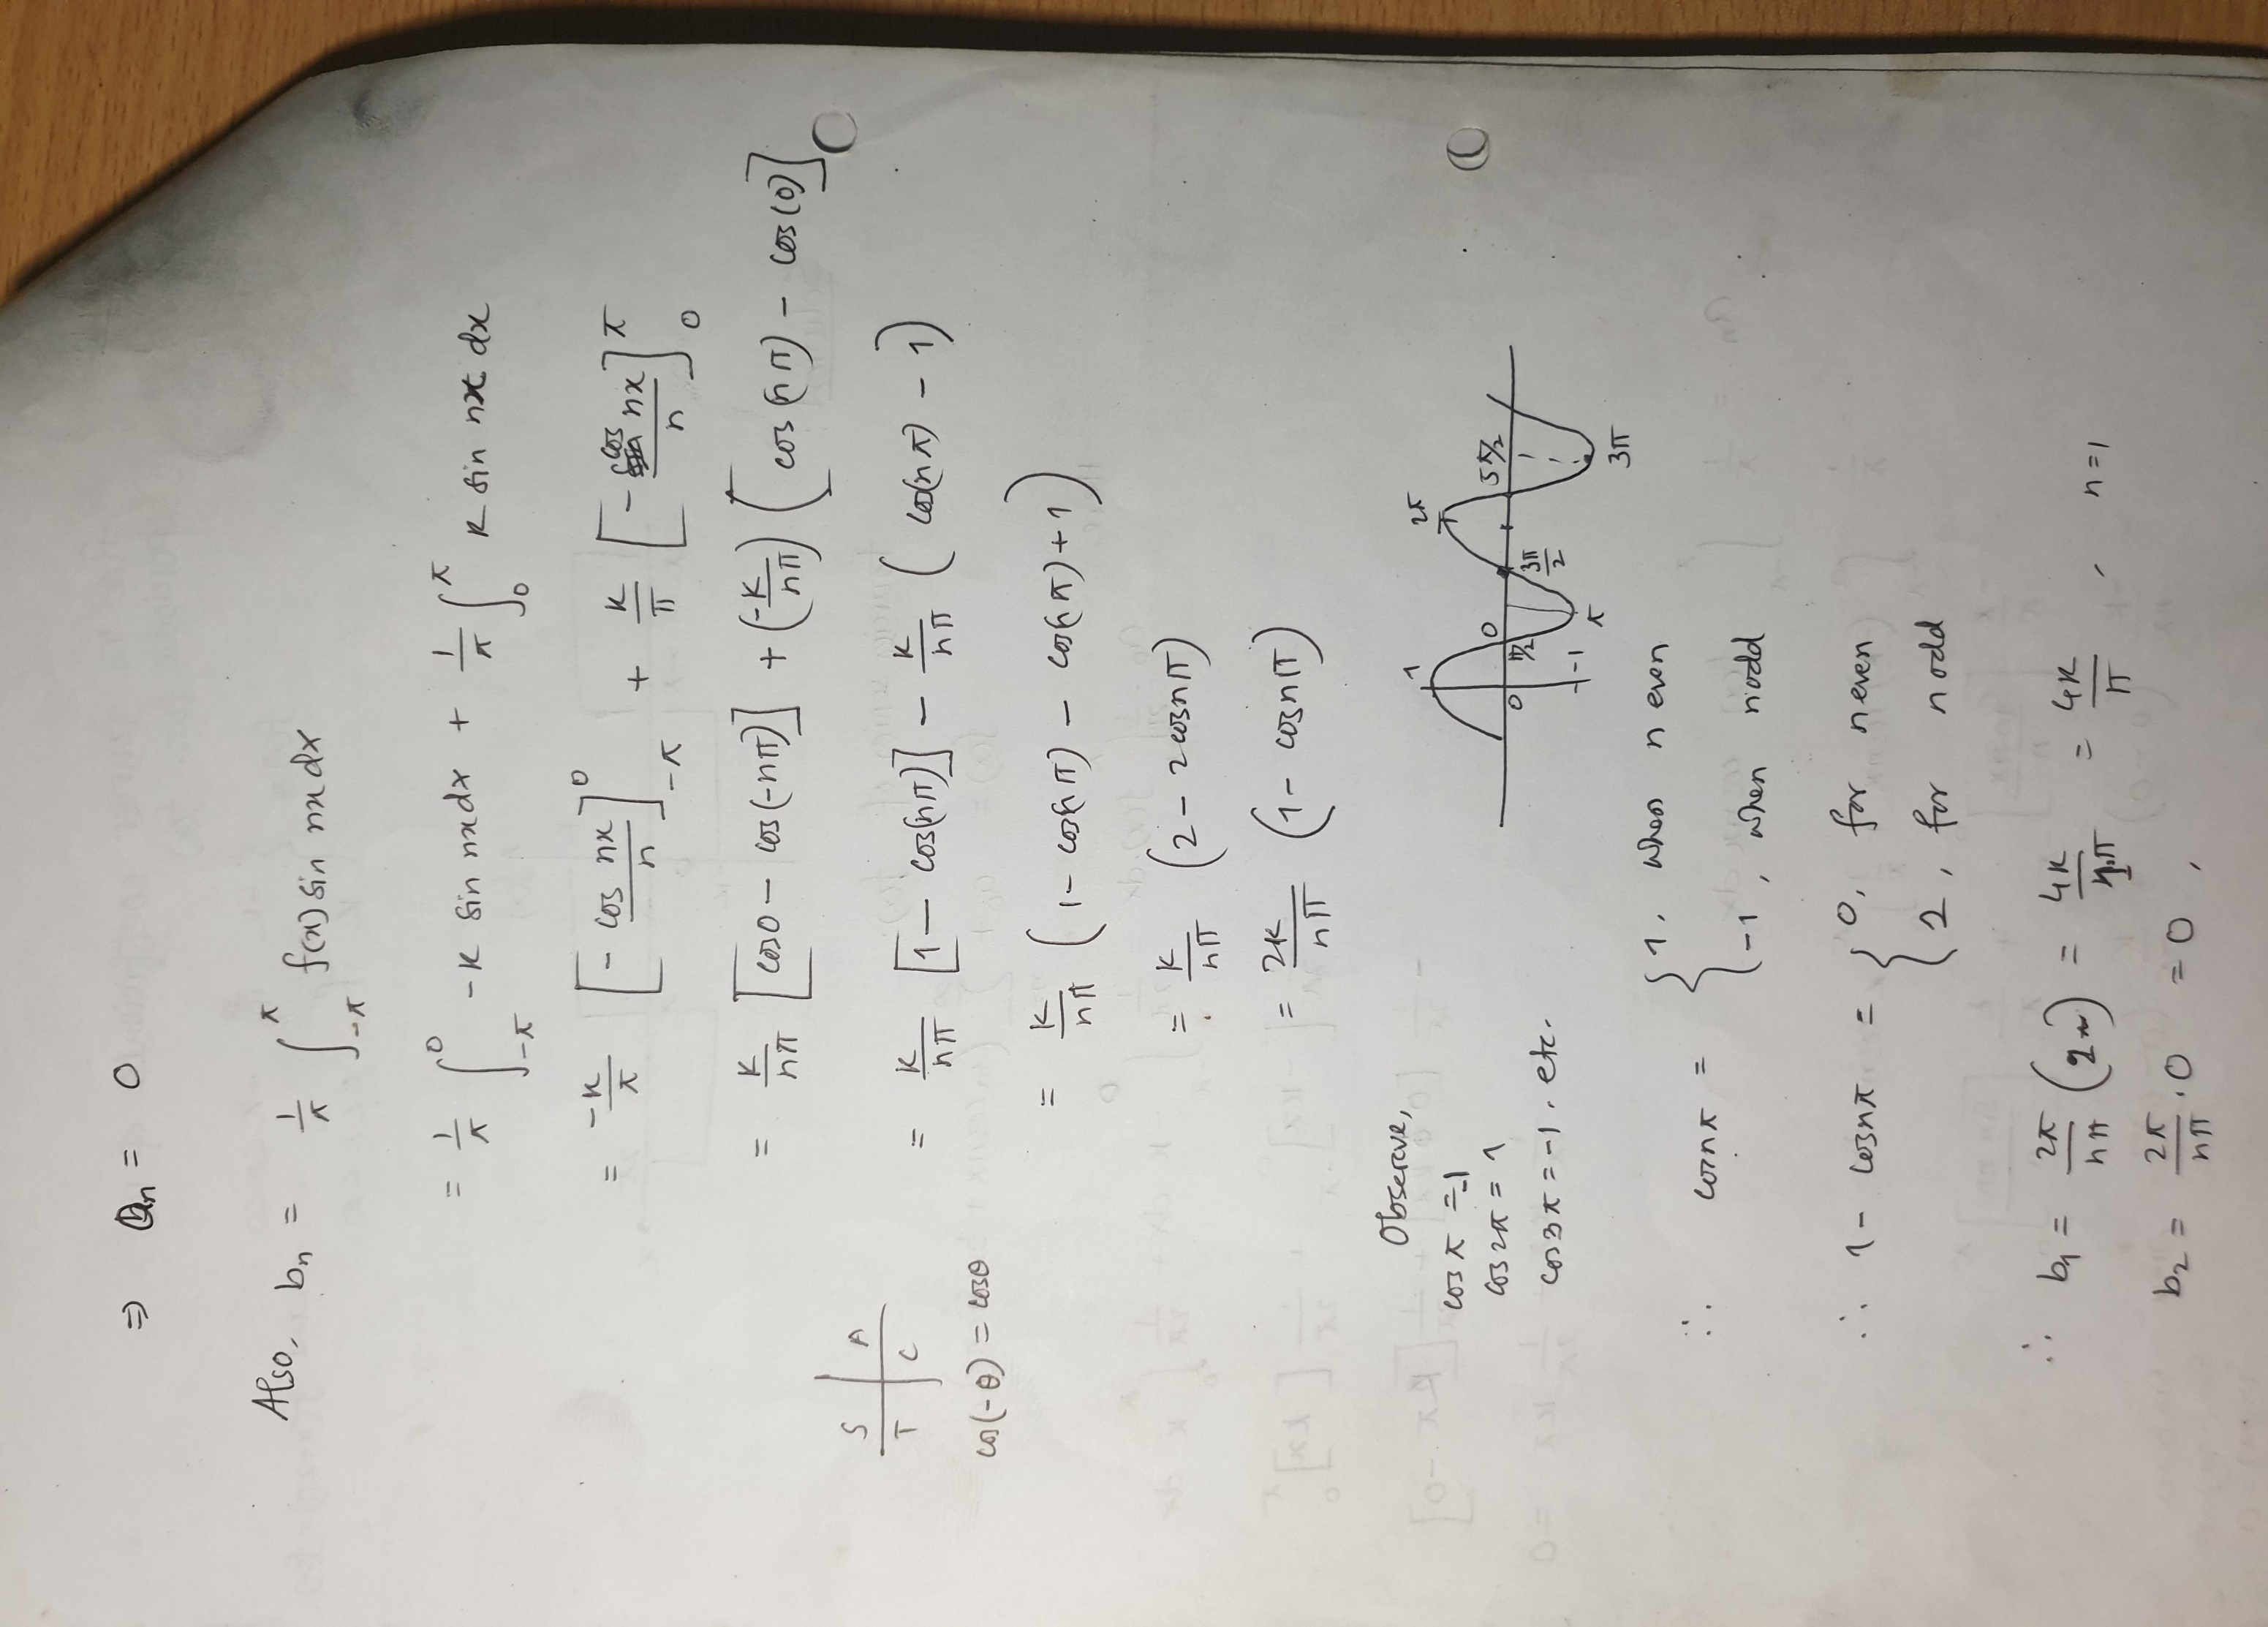 ⇒ aₙ = 0
Also, bₙ = 1/π ∫_{-π}^{π} f(x) sin nx dx
= 1/π ∫_{-π}^{0} -k sin nx dx + 1/π ∫_{0}^{π} k sin nx dx
= -k/π [- cos nx / n]_{-π}^{0} + k/π [- cos nx / n]_{0}^{π}
= k/nπ [cos0 - cos(-nπ)] + (-k/nπ) (cos(nπ) - cos(0)]
S A
T C
cos(-θ) = cosθ
= k/nπ [1 - cos(nπ)] - k/nπ (cos(nπ) - 1)
= k/nπ (1 - cos(nπ) - cos(nπ) + 1)
= k/nπ (2 - 2cosnπ)
= 2k/nπ (1 - cosnπ)
Observe,
cos π = -1
cos 2π = 1
cos 3π = -1, etc.
1 0 2π 5π/2
0 π/2 3π/2
-1 π 3π
∴ cosnπ = { 1, when n even
-1, when n odd
∴ 1 - cosnπ = { 0, for n even
2, for n odd
∴ b₁ = 2π/nπ (2) = 4k/nπ = 4k/π , n=1
b₂ = 2π/nπ . 0 = 0 ,